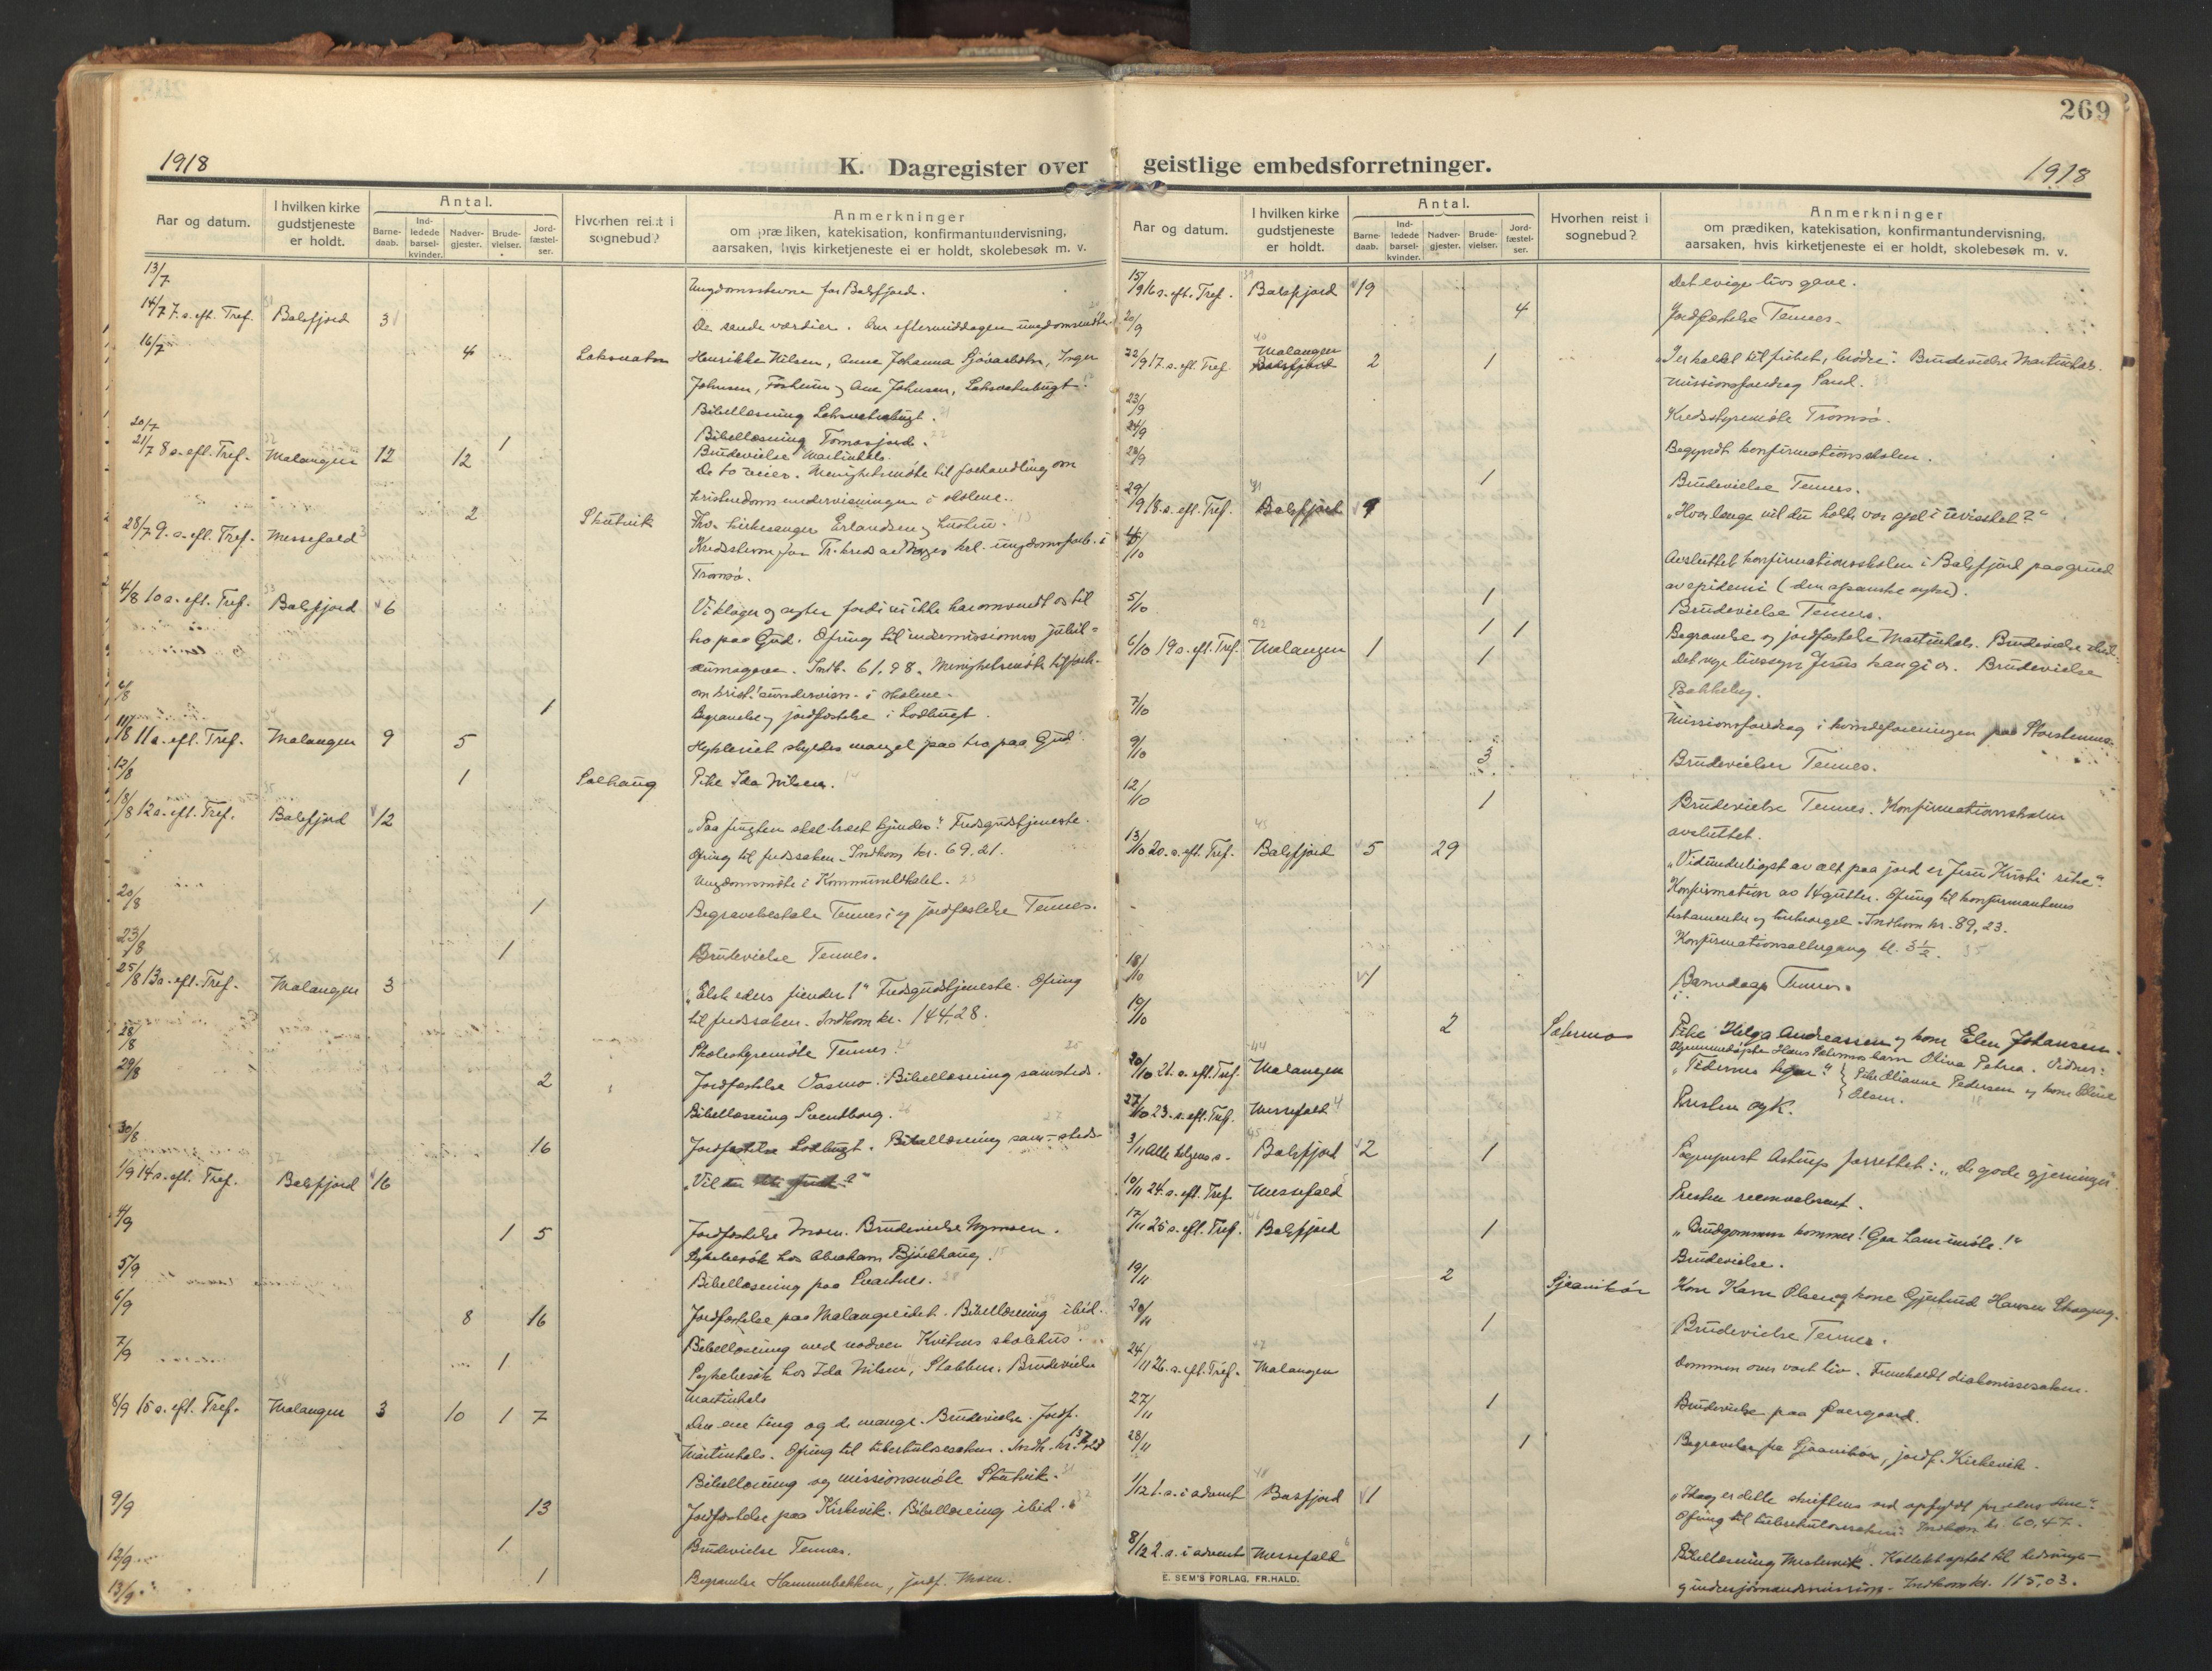 269
1918
K. Dagregister over geistlige embedsforretninger.
1918
Aar og datum.
I hvilken kirke gudstjeneste er holdt.
Antal.
Barne-daab.
Ind-ledede barsel-kvinder.
Nadver-gjester.
Brude-vielser.
Jord-fæstel-ser.
Hvorhen reist i sognebud?
Anmerkninger
om prædiken, katekisation, konfirmantundervisning,
aarsaken, hvis kirketjeneste ei er holdt, skolebesøk m. v.
13/7 Ungdomsstevne for Balsfjord.
14/7 7. s. eft. Tref. Balsfjord 3 De sande værdier. Om eftermiddagen ungdomsmøte
16/7 4 Laksvatn Henrikke Nilsen, Anna Johanna Inger
Johnsen, Forheim og Ane Johnsen, Laksvatnbugt.
Bibellæsning Laksvatnbugt.
20/7 1 Bibellæsning Tomasjord.
Brudevielse Martinhals.
21/7 8 s. eft. Tref. Malangen 12 12 De to veier. Menighetsmøte til forhandling om
kristendomsundervisningen i skolene.
2 Skutvik Fhv. kirkesanger Erlandsen og hustru.
28/7 9. s. eft. Tref. Messefald Kredsstevne for Tr. kreds av Norges kel. ungdomsforb. i
Tromsø.
4/8 10 s. eft. Tref. Balsfjord 6 Vi klager og fordi vi ikke har omvendt os til
tro paa Gud. Ofring til indremissionens jubil-
æumsgave. Indk. 61.98. Menighetsmøte til forh.
om krist. undervisn. i skolene.
6/8 1 Begravelse og jordfæstelse i Lodbugt.
11/8 11 s. eft. Tref. Malangen 9 5 Hykleriet skyldes mangel paa tro paa Gud.
12/8 1 Solhaug Pike Ida Nilsen.
18/8 12 s. eft. Tref. Balsfjord 12 „Paa frugten skal træet kjendes." Fredsgudstjeneste.
Ofring til fredssaken. Indkom kr. 69.21.
Ungdomsmøte i Kommunelokalet.
20/8 1 Begravelsestale Tennes og jordfæstelse Tennes.
23/8 1 Brudevielse Tennes.
25/8 13 s. eft. Tref. Malangen 3 „Elsk eders fiender!" Fredsgudstjeneste. Ofring
til fredssaken. Indkom kr. 144,28.
28/8 Skolestyremøte Tennes.
29/8 2 Jordfæstelse Vasmo. Bibellæsning samsteds.
Bibellæsning Svendborg.
30/8 16 Jordfæstelse Lodbugt. Bibellæsning samsteds.
1/9 14 s. eft. Tref. Balsfjord 16 „Vil du
4/9 1 5 Jordfæstelse Moen. Brudevielse Nymoen.
Sykebesøk hos Abraham Bjørkhaug.
5/9 Bibellæsning paa Svartnes.
6/9 8 16 Jordfæstelse paa Malangseidet. Bibellæsning ibid.
Bibellæsning med nadver Kvitnes skolehus.
7/9 1 Sykebesøk hos Ida Nilsen, Stabben. Brudevielse
Martinhals
8/9 15 s. eft. Tref. Malangen 3 10 1 7 Den ene ting og de mange. Brudevielse. Jordf.
Martinhals. Ofring til tuberkulosesaken. Indk. kr. 137,23
Bibellæsning og missionsmøte Skutvik.
9/9 13 Jordfæstelse paa Kirkevik. Bibellæsning ibid.
12/9 1 Brudevielse Tennes.
13/9 1 Begravelse Hammerbakken, jordf. Moen.
Aar og datum.
I hvilken kirke gudstjeneste er holdt.
Antal.
Barne-daab.
Ind-ledede barsel-kvinder.
Nadver-gjester.
Brude-vielser.
Jord-fæstel-ser.
Hvorhen reist i sognebud?
Anmerkninger
om prædiken, katekisation, konfirmantundervisning,
aarsaken, hvis kirketjeneste ei er holdt, skolebesøk m. v.
15/9 16 s. eft. Tref. Balsfjord 19 Det evige livs gave.
20/9 4 Jordfæstelse Tennes.
22/9 17. s. eft. Tref. Malangen Balsfjord 2 1 „I er kaldet til frihet, brødre." Brudevielse Martinhals.
Missionsforedrag Sand.
23/9 Kredsstyremøte Tromsø.
24/9
28/9 Begyndt konfirmationsskolen.
1 Brudevielse Tennes.
29/9 18. s. eft. Tref. Balsfjord 9 „Hvor længe vil du holde vor sjel i uvisshet?"
4/10 Avsluttet konfirmationsskolen i Balsfjord paa grund
av epidemi (den spanske syke).
5/10 1 Brudevielse Tennes.
1 1 Begravelse og jordfæstelse Martinhals. Brudevielse ibid.
6/10 19 s. eft. Tref. Malangen 1 1 Det nye livssyn Jesus kan gi os. Brudevielse
Bakkeby.
7/10 Missionsforedrag i kvindeforeningen paa Storsteinnes.
9/10 3 Brudevielser Tennes.
12/10 1 Brudevielse Tennes. Konfirmationsskolen
avsluttet.
13/10 20. s. eft. Tref. Balsfjord 5 29 „Vidunderligst av alt paa jord er Jesu Kristi rike".
Konfirmation av 14 gutter. Ofring til konfirmantenes
testamenter og kirkeorgel. Indkom kr. 89,23.
Konfirmationsaltergang kl. 3½.
18/10 1 Barnedaap Tennes.
19/10 2 Sætermo Pike Helga Andreassen og kone Elen Johansen.
Hjemmedøpte Hans Sætermos barn Oliva Petrea. Vidner:
20/10 21. s. eft. Tref. Malangen „Fædrenes " Pike Olianne Pedersen og kone Eline
Olsen.
27/10 23. s. eft. Tref. Messefald Presten syk.
3/11 Alle helgens s. Balsfjord 2 1 Sogneprest Astrup forrettet: „De gode gjerninger".
10/11 24. s. eft. Tref. Messefald Presten reconvalesent.
17/11 25 s. eft. Tref. Balsfjord 1 „Brudgommen kommer! Gaa ham imøte!"
Brudevielse.
19/11 2 Sjaavikør Kone Karen Olsen og kone Gjertrud Hansen
20/11 1 Brudevielse Tennes.
24/11 26. s. eft. Tref. Malangen Dommen over vort liv. Fremholdt diakonissesaken.
27/11 1 Brudevielse paa Øvergaard.
28/11 1 Begravelse fra Sjaavikør, jordf. Kirkevik.
1/12 1. s. i advent Basfjord 1 „Idag er dette skriftens ord opfyldt for eders øine".
Ofring til tuberkulosesaken. Indkom kr. 60,47.
8/12 2. s. i advent Messefald Bibellæsning Mestervik. Kollekt optat til
og indresjømandsmission. Indkom kr. 115,03.
E. SEM'S FORLAG, FR.HALD.